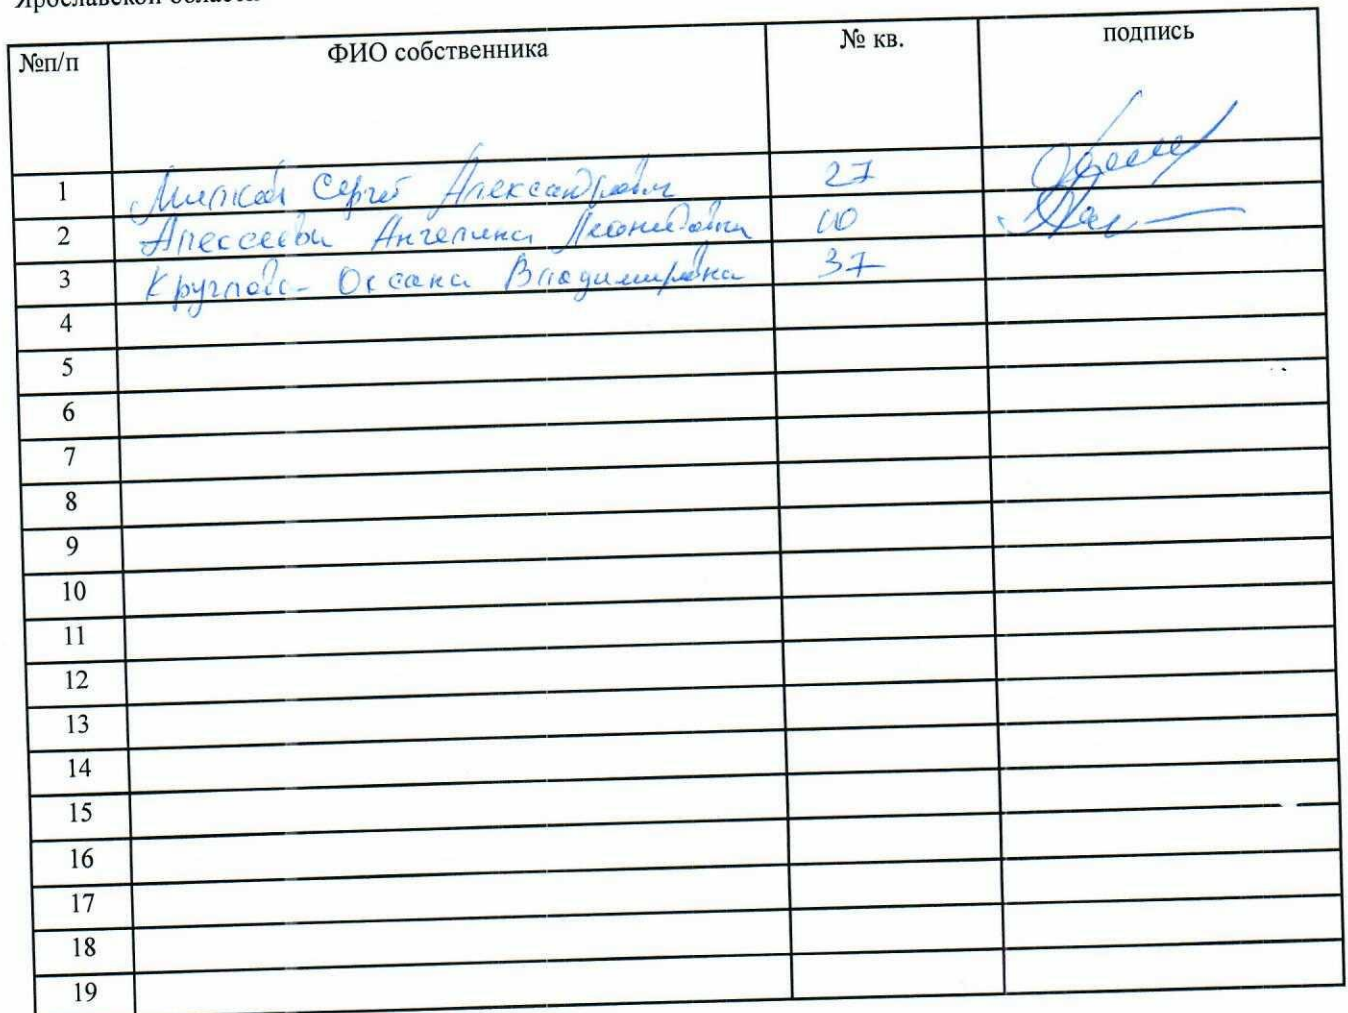 Ярославской области
№п/п ФИО собственника № кв. подпись
1 Сергей Александрович 27
2 Ангелина Леонидовна
3 Круглова Оксана Владимировна 37
4
5
6
7
8
9
10
11
12
13
14
15
16
17
18
19